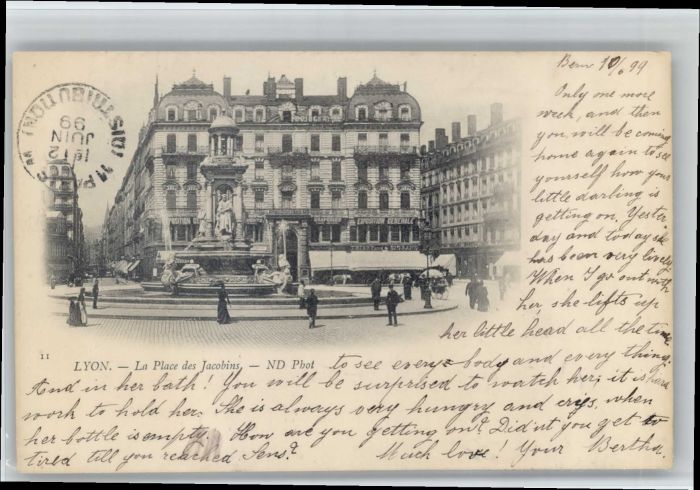 Bern 10/6 99
Only one more
week, and then
you will be coming
home again to see
yourself how your
little darling is
getting on. Yester-
day and today she
has been very lively
When I go out with
her, she lifts up
her little head all the time
to see every-body and every thing.
And in her bath! You will be surprised to watch her; it is hard
work to hold her. She is always very hungry and crys, when
her bottle is empty. How are you getting on? Did'nt you get to
tired till you reached Sens?
Much love! Your Bertha.
DISTRIBUTION
11
12
JUIN
99
11
LYON. — La Place des Jacobins. — ND Phot